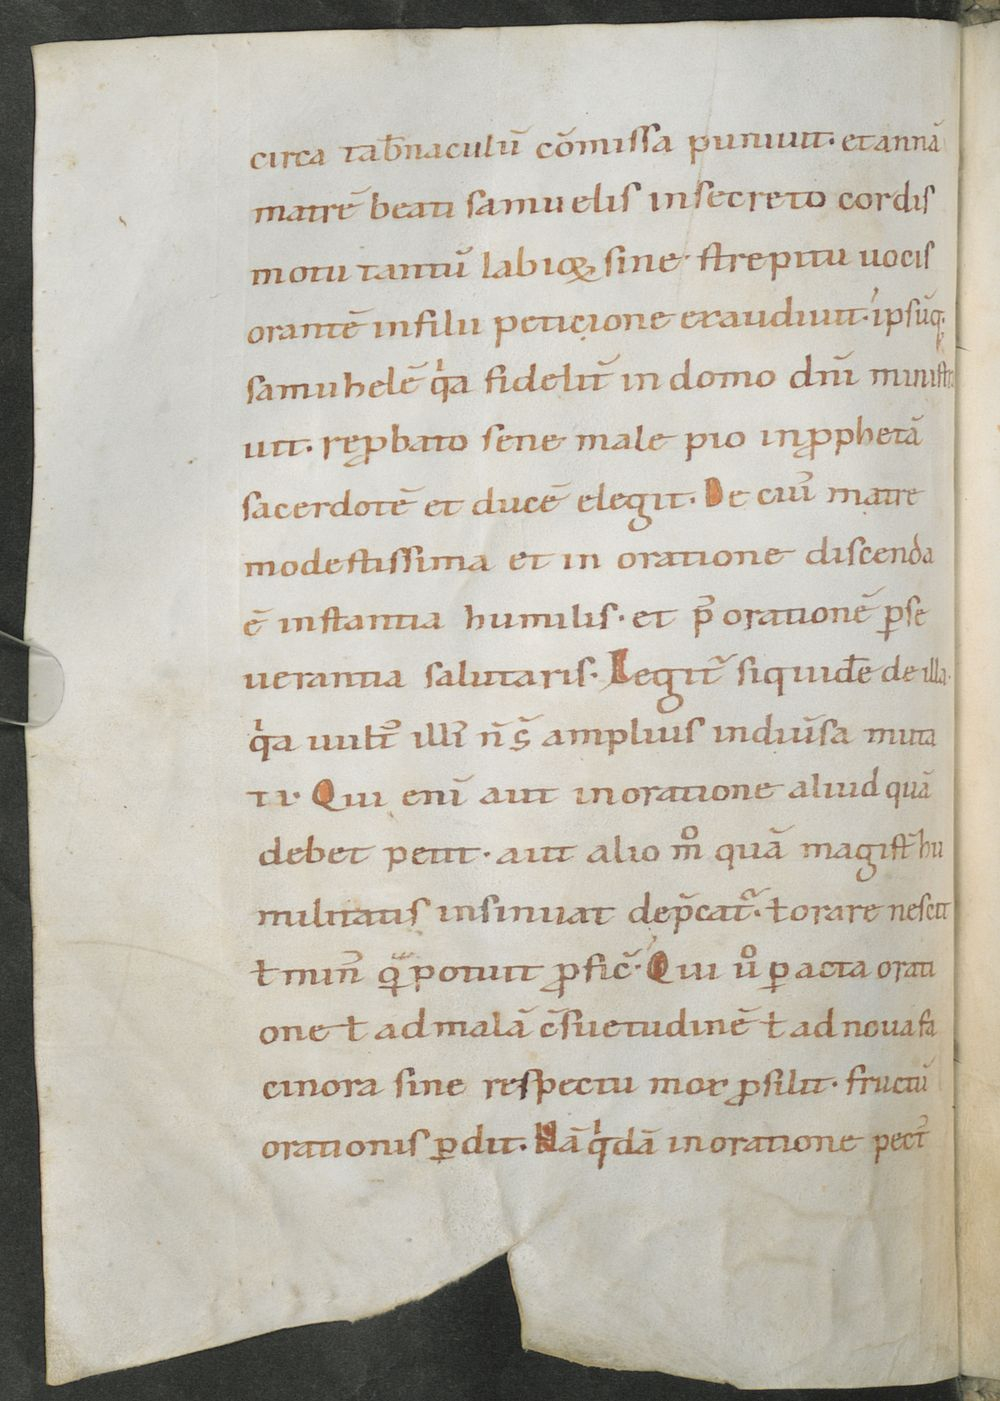 circa tab̅naculū cōmissa puniuit. et annā
matrē beati samuelis in secreto cordis
motu tantū labioꝝ sine strepitu uocis
orantē in filii peticione exaudiuit. ipsūq;
samuhelē qͥa fidelit̅ in domo dn̅i ministra
uit. reꝓbato sene male pio in ꝓphetā
sacerdotē et ducē elegit. De cuiꝰ matre
modestissima et in oratione discenda
ē instantia humilis. et p̅ orationē ꝑse
uerantia salutaris. Legit᷑ siquidē de illa.
qͥa uultꝰ illiꝰ n̅ s̅ amplius in diuͥsa muta
ti. Qui eni̅ aut in oratione aliud quā
debet petit. aut alio mͦ quā magist̅ hu
militatis insinuat dep̅cat᷑. ł orare nescit
ł minꝰ qͣ̅ potuit ꝓfic̅. Qui uͦ ꝑacta orati
one ł ad malā c̅suetudinē ł ad noua fa
cinora sine respectu mox ꝓsilit. fructū
orationis ꝑdit. Nā qͥdā in oratione pectꝰ